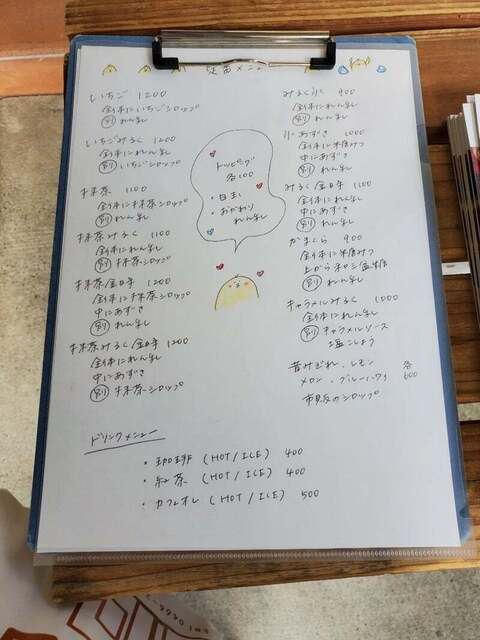 定番メニュー
いちご 1200
全体にいちごシロップ
別 れん乳
いちごみるく 1200
全体にれん乳
別 いちごシロップ
抹茶 1100
全体に抹茶シロップ
別 れん乳
抹茶みるく 1100
全体にれん乳
別 抹茶シロップ
抹茶金時 1200
全体に抹茶シロップ
中にあずき
別 れん乳
抹茶みるく金時 1200
全体にれん乳
中にあずき
別 抹茶シロップ
トッピング
各100
・白玉
・おかわり
れん乳
みるく氷 900
全体にれん乳
別 れん乳
氷あずき 1000
全体に本みつ
中にあずき
別 れん乳
みるく金時 1100
全体にれん乳
中にあずき
別 れん乳
かまくら 900
全体に みつ
上から和三盆糖
別 れん乳
キャラメルみるく 1000
全体にれん乳
別 キャラメルソース
塩こしょう
昔みぞれ、レモン 各
メロン、ブルーハワイ 600
市販のシロップ
ドリンクメニュー
・珈琲 (HOT/ICE) 400
・紅茶 (HOT/ICE) 400
・カフェオレ (HOT/ICE) 500